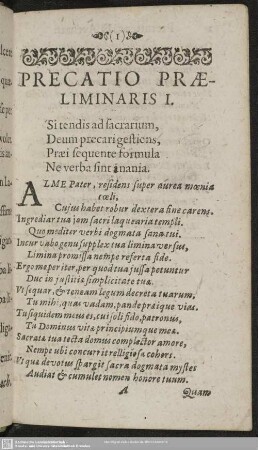 (1)
PRECATIO PRÆ-
LIMINARIS I.
Si tendis ad sacrarium,
Deum precari gestiens,
Præi sequente formula
Ne verba sint inania.
ALME Pater, residens super aurea mœnia
cœli,
Cujus habet robur dextera fine carens.
Ingrediar tua jam sacri laquearia templi.
Quo mediter verbi dogmata sana tui.
Incurvabo genu supplex tua limina versus,
Limina promissa nempe referta fide.
Ergo me per iter, per quod tua jussa petuntur
Duc in justitiæ simplicitate tuæ.
Ut sequar, & teneam legum decreta tuarum,
Tu mihi, qua vadam, pande præique vias.
Tu siquidem meus es, cui soli fido, patronus,
Tu Dominus vitæ principiumque meæ.
Sacrata tua tecta domus complector amore,
Nempe ubi concurrit relligiosa cohors.
Vt quæ devotus spargit sacra dogmata mystes
Audiat & cumulet nomen honore tuum.
A
Quam